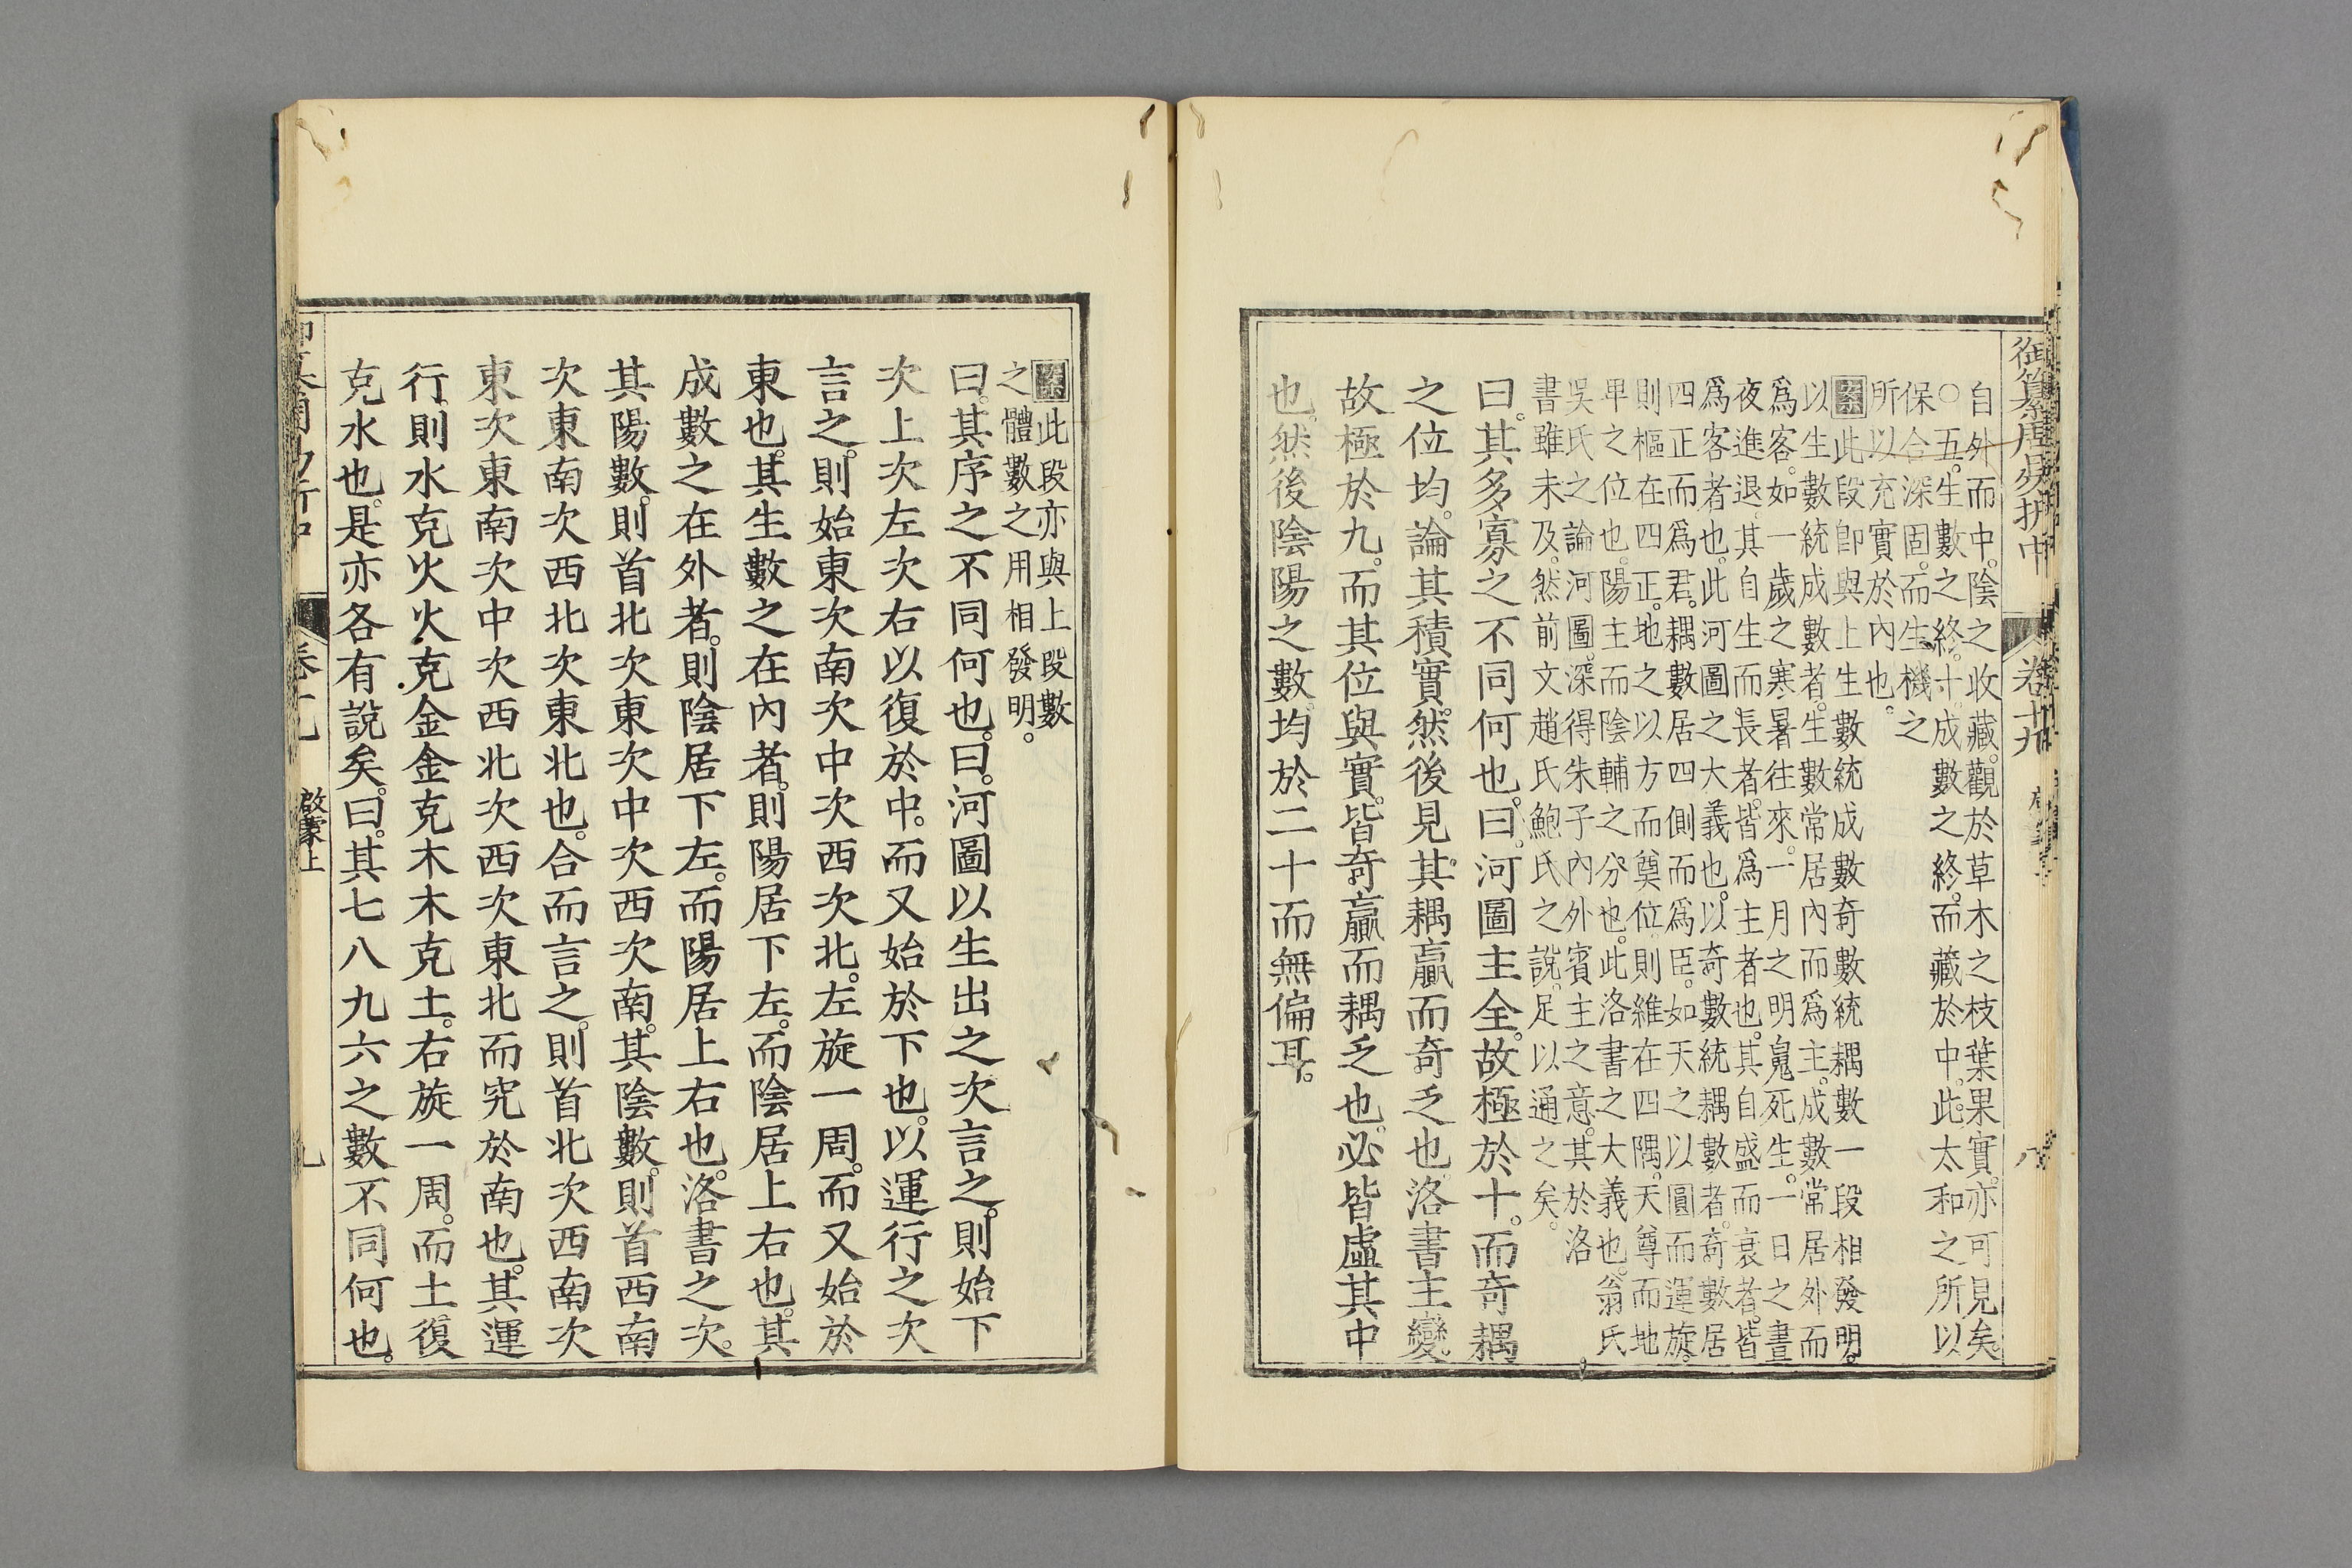 御纂周易折中　卷十九　八
自外而中。陰之收藏。觀於草木之枝葉果實。亦可見矣。
○五。生數之終。十。成數之終。而藏於中。此太和之所以
保合深固。而生機之
所以充實於內也。
案此段卽與上生數統成數奇數統耦數一段相發明。
以生數統成數者。生數常居內而爲主。成數常居外而
爲客。如一歲之寒暑往來。一月之明魄死生。一日之晝
夜進退。其自生而長者。皆爲主者也。其自盛而衰者。皆
爲客者也。此河圖之大義也。以奇數統耦數者。奇數居
四正而爲君。耦數居四側而爲臣。如天之以圓而運旋。
則樞在四正。地之以方而奠位則維在四隅。天尊而地
卑之位也。陽主而陰輔之分也。此洛書之大義也。翁氏
吳氏之論河圖。深得朱子內外賓主之意。其於洛
書雖未及。然前文趙氏鮑氏之說。足以通之矣。
曰。其多寡之不同何也。曰。河圖主全。故極於十。而奇耦
之位均。論其積實。然後見其耦贏而奇乏也。洛書主變。
故極於九。而其位與實。皆奇贏而耦乏也。必皆虛其中
也。然後陰陽之數。均於二十而無偏耳。
案此段亦與上段數
之體數之用相發明。
曰。其序之不同何也。曰。河圖以生出之次言之。則始下
次上次左次右以復於中。而又始於下也。以運行之次
言之。則始東次南次中次西次北。左旋一周。而又始於
東也。其生數之在內者。則陽居下左。而陰居上右也。其
成數之在外者。則陰居下左。而陽居上右也。洛書之次。
其陽數。則首北次東次中次西次南。其陰數。則首西南
次東南次西北次東北也。合而言之。則首北次西南次
東次東南次中次西北次西次東北而究於南也。其運
行。則水克火火克金金克木木克土。右旋一周。而土復
克水也。是亦各有說矣。曰。其七八九六之數不同何也。
卷十九　啟蒙上　九